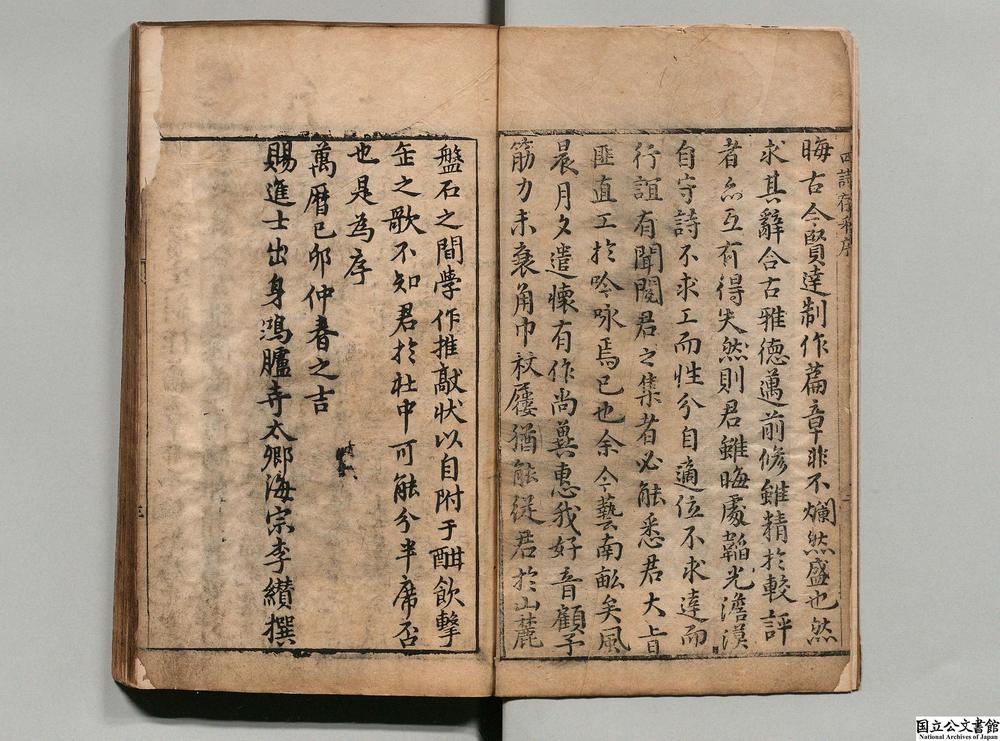 晦古今賢達制作篇章非不爛然盛也然
求其辭合古雅德邁前修雖精於較評
者亦互有得失然則君雖晦處韜光澹漠
自守詩不求工而性分自適位不求達而
行誼有聞閱君之集者必能悉君大旨
匪直工於吟咏焉已也余今藝南畝矣風
晨月夕遣懷有作尚冀惠我好音顧予
筋力未衰角巾杖屨猶能從君於山麓
盤石之間學作推敲狀以自附于酣飲擊
缶之歌不知君於社中可能分半席否
也是為序
萬曆己卯仲春之吉
賜進士出身鴻臚寺太卿海宗李纉撰
三
国立公文書館
National Archives of Japan